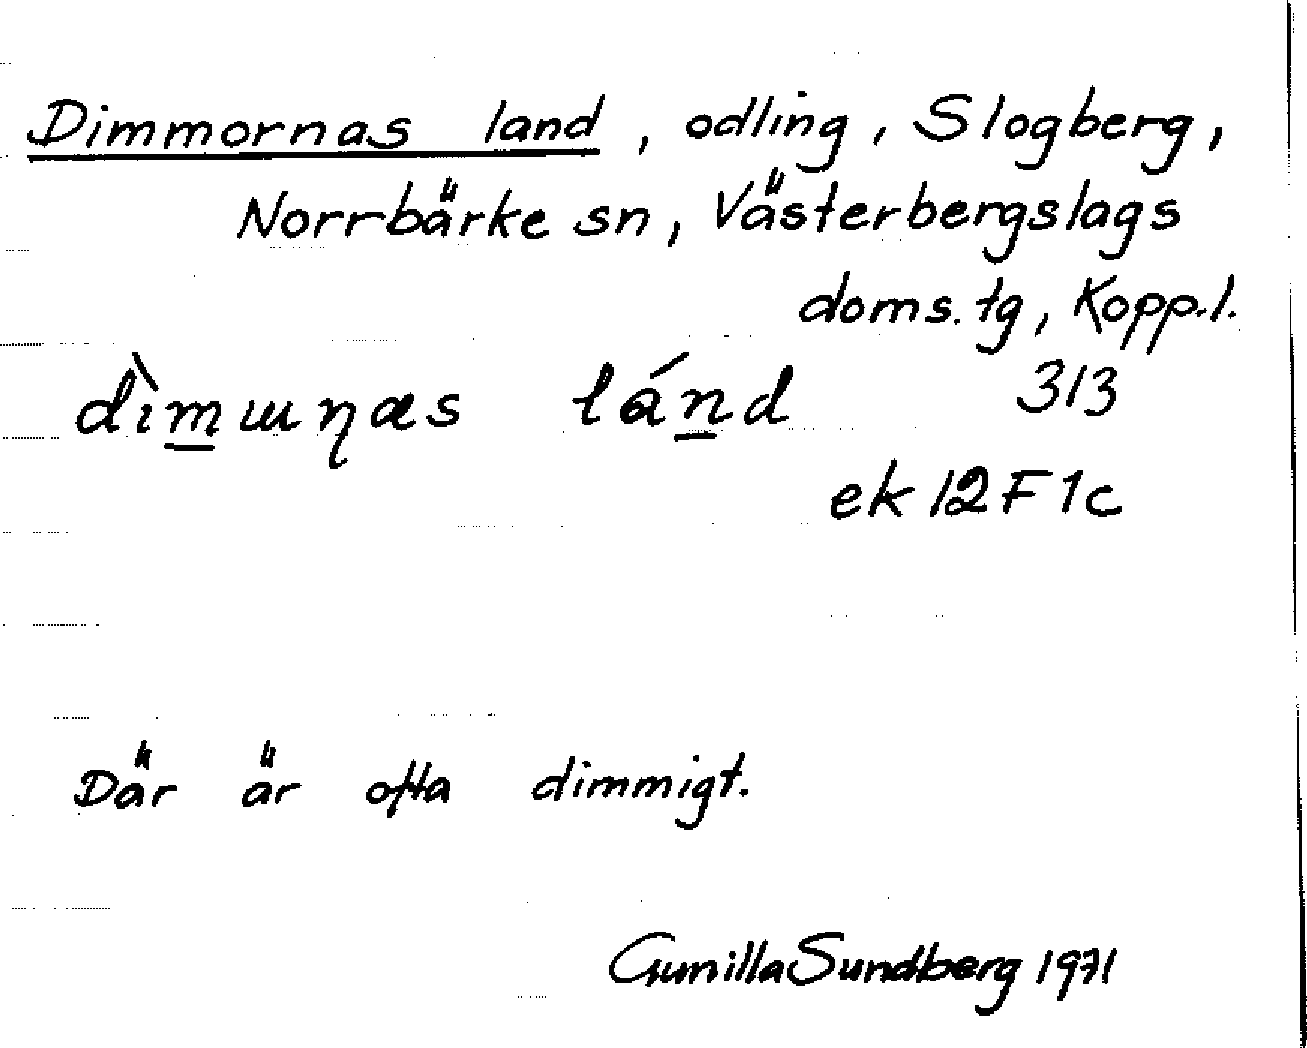 Dimmornas land, odling, Slogberg,
Norrbärke sn, Västerbergslags
doms.tg, Kopp.l.
dìm̲ɯɳæs lán̲d 313
ek 12F1c
Där är ofta dimmigt.
Gunilla Sundberg 1971